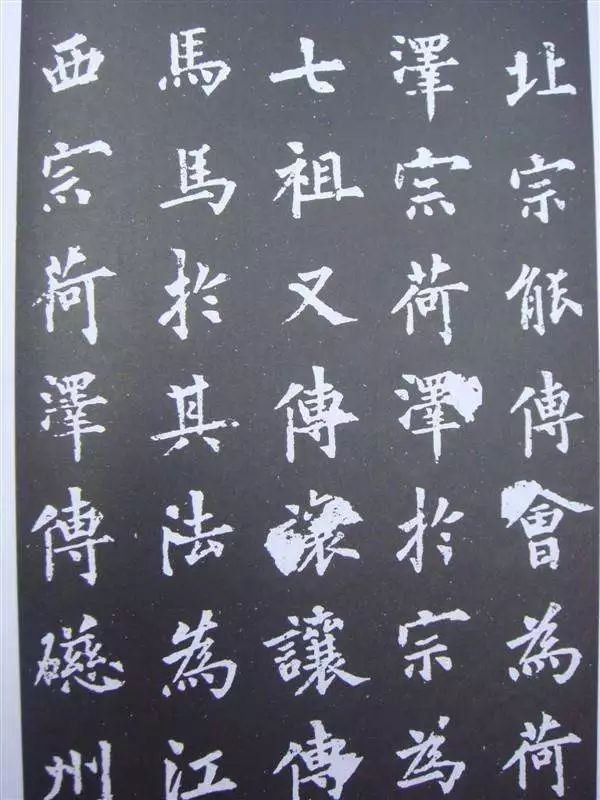 北宗能傳會為荷
澤宗荷澤於宗為
七祖又傳讓讓傳
馬馬於其法為江
西宗荷澤傳磁州